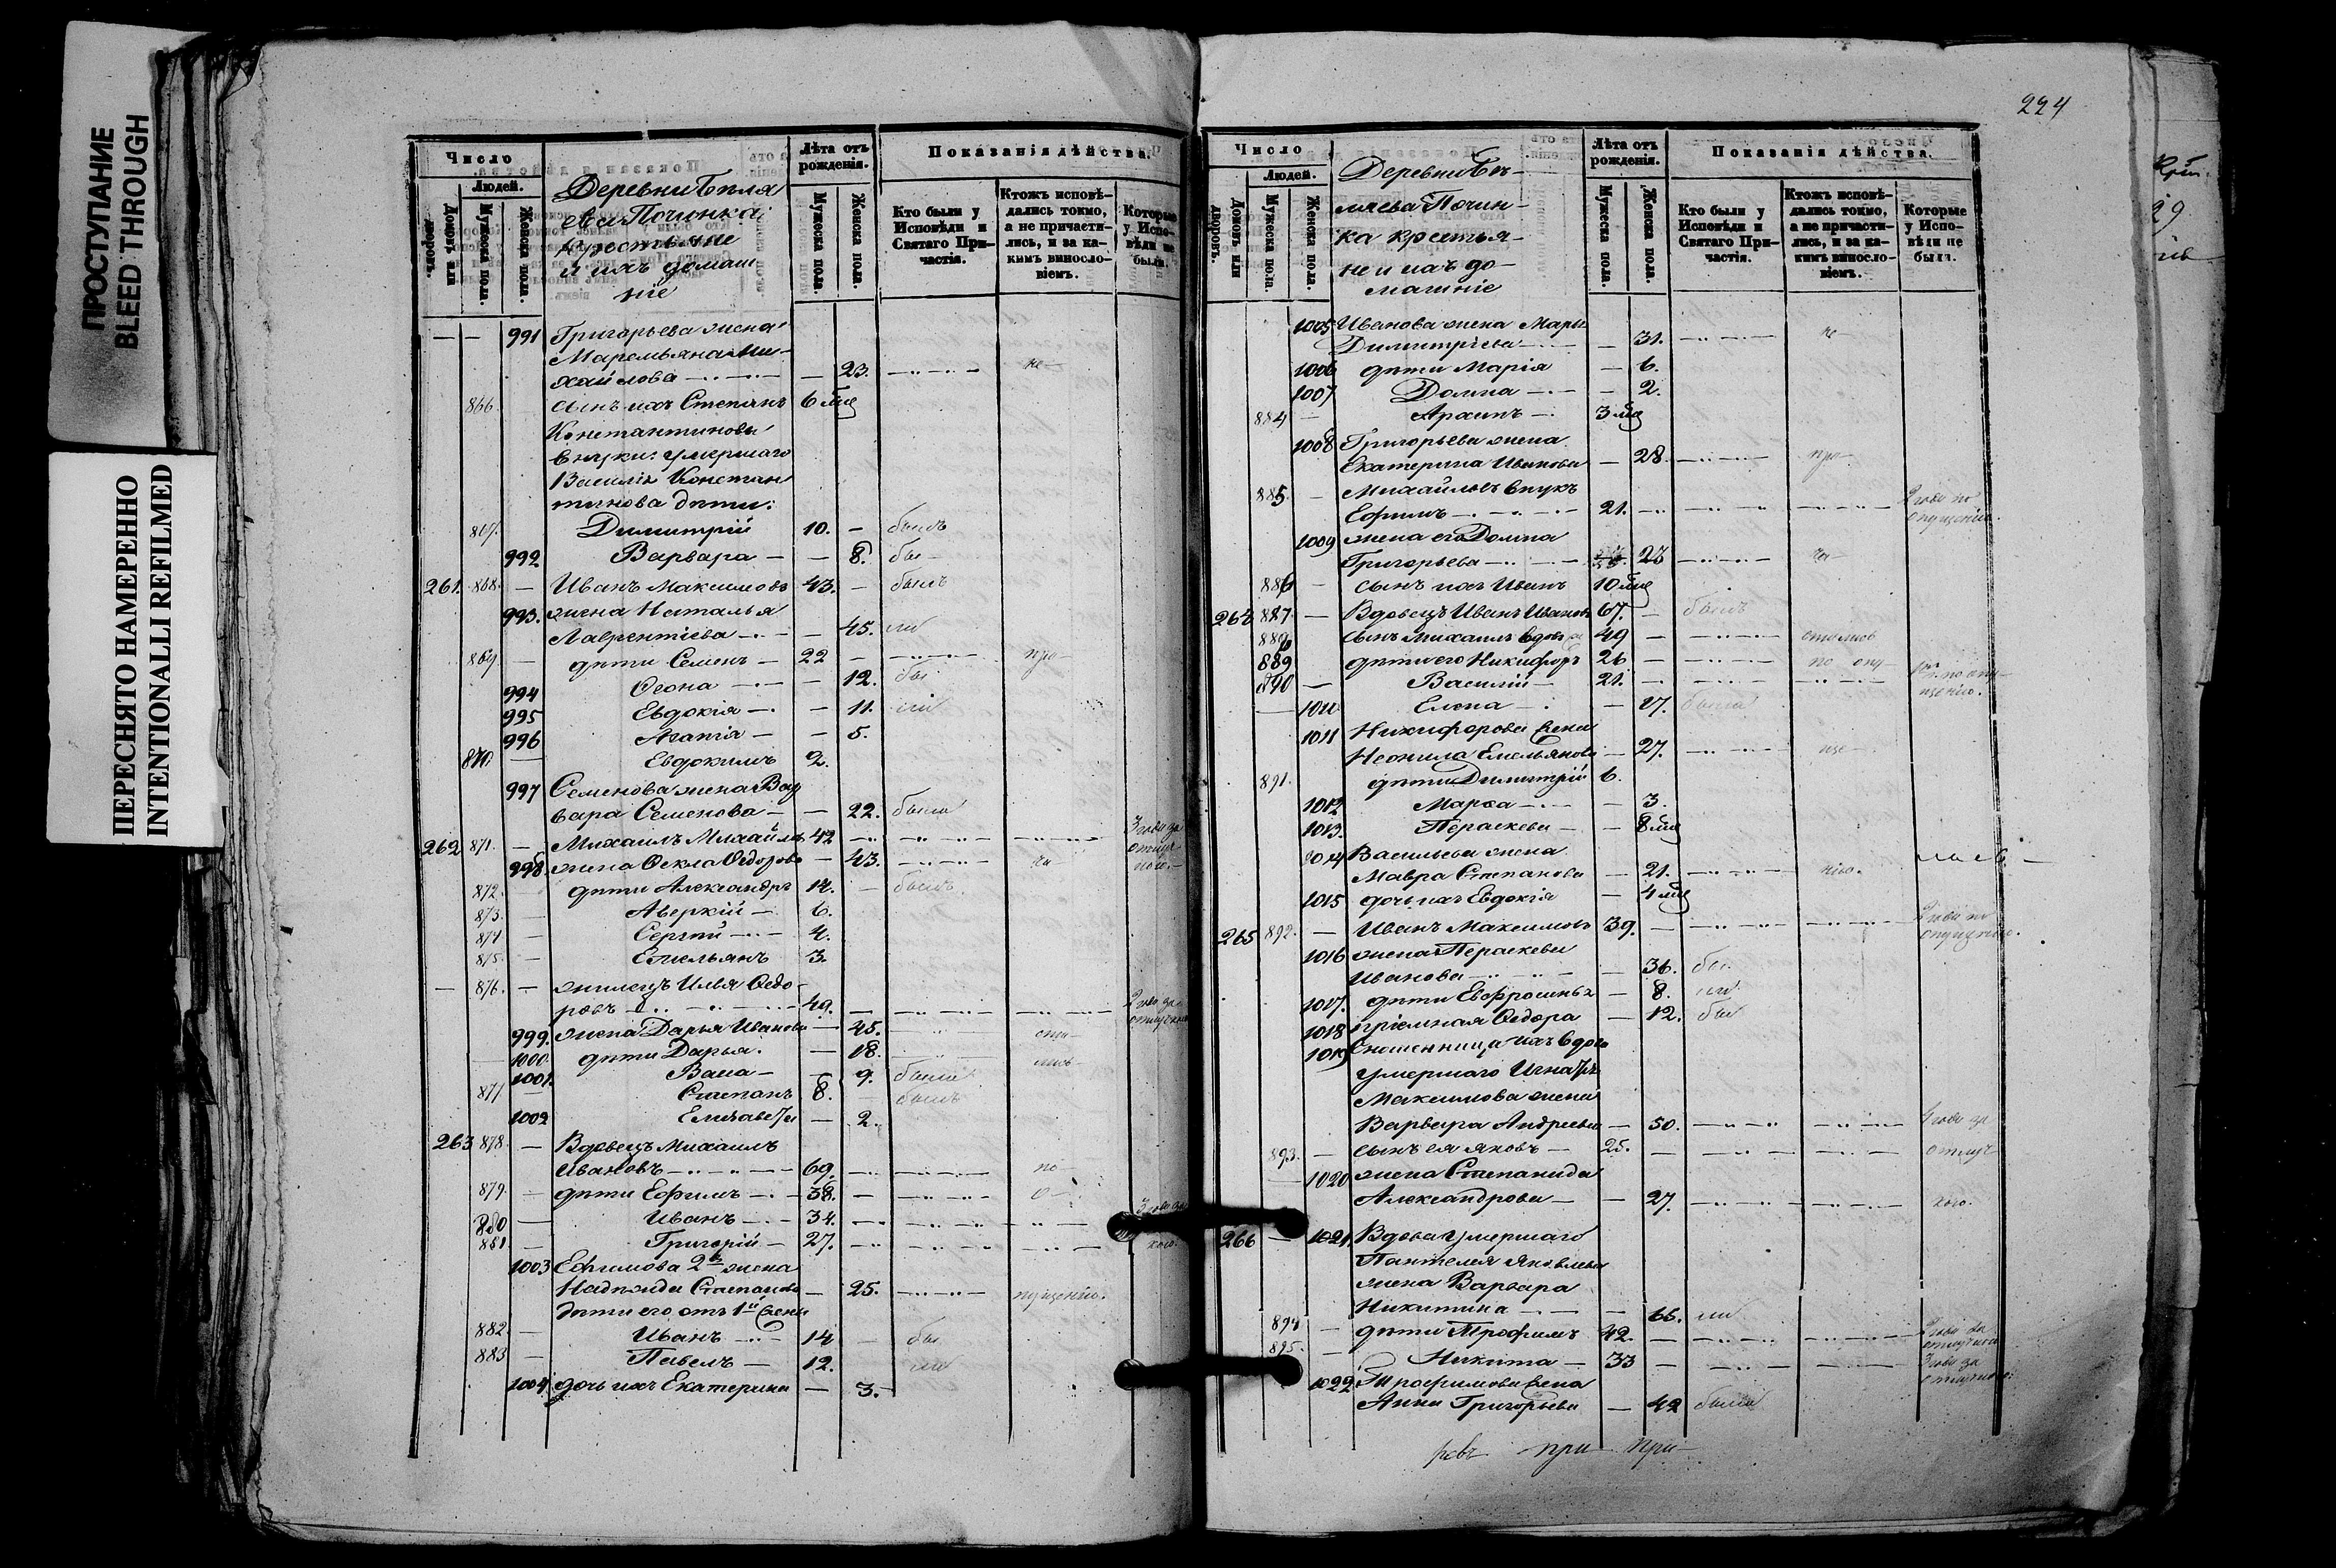 ПРОСТУПАНИЕ
BLEED THROUGH
ПЕРЕСНЯТО НАМЕРЕННО
INTENTIONALLI REFILMED
Число
Людей.
Домовъ или дворовъ.
Мужеска пола.
Женска пола.
Деревни Бѣляева Починка
крестьяне
и ихъ домашніе
Лѣта отъ рожденія.
Мужеска пола.
Женска пола.
Показанія дѣйства.
Кто были у Исповѣди и Святаго Причастія.
Ктожъ исповѣдались токмо, а не причастились, и за какимъ винословіемъ.
Которые у Исповѣди не были.
991 Григорьева жена
Маремьяна Михайлова — 23. не
866. сынъ ихъ Степанъ 6 мѣс
Константиновы
внуки: умершаго
Василія Константинова дѣти:
867. Димитрій 10. — былъ
992 Варвара — 8. бы
261. 868. — Иванъ Максимовъ 43. — былъ
993. жена Наталья
Лаврентіева — 45. ли
869. — дѣти Семенъ — 22 — при
994 Ѳеона — 12. бы
995 Евдокія — 11. ли
996 Агапія — 5.
870. — Евдокимъ 2.
997 Семенова жена Варвара Семенова — 22. была
262 871. — Михаилъ Михайловъ 42 3 года за отлуч
998. жена Ѳекла Ѳедорова — 43. ча кою.
872. дѣти Александръ 14. — былъ
873. — Аверкій — 6.
874 — Сергій 4.
875. — Емельянъ 3.
— 876. — жилецъ Ильи Ѳедоровъ 49. 2 года за отлучкою
999. жена Дарья Иванова — 45. сти
1000. дѣти Дарья. — 18. лись
1001. Васса — 9. была
877 Степанъ 8. — былъ
1002 Елизавета — 2.
263 878. — Вдовецъ Михаилъ
Ивановъ 69. по
879. — дѣти Ефимъ 38. — о
880 — Иванъ 34. 3 года за
881. — Григорій — 27. кою.
1003 Ефимова 2я жена
Надежда Степанова — 25. пущенію.
дѣти его отъ 1й жены
882. — Иванъ 14 — бы
883 — Павелъ — 12. ли
1004 дочь ихъ Екатерина — 3.
224
Число
Людей.
Домовъ или дворовъ.
Мужеска пола.
Женска пола.
Деревни Бѣляева Починка крестьяне и ихъ домашніе
Лѣта отъ рожденія.
Мужеска пола.
Женска пола.
Показанія дѣйства.
Кто были у Исповѣди и Святаго Причастія.
Ктожъ исповѣдались токмо, а не причастились, и за какимъ винословіемъ.
Которые у Исповѣди не были.
1005 Иванова жена Марья
Димитріева — 31. не
1006 дѣти Марія — 6.
1007 Домна — 2.
884 — Архипъ 3 мѣс
1008 Григорьева жена
Екатерина Иванова — 28. при
885. — Михайловъ внукъ
Ефимъ 21. 2 года по опущенію.
1009 жена его Домна
Григорьева 23 ча
886 — сынъ ихъ Иванъ 10 мѣс
264 887 — Вдовецъ Иванъ Ивановъ 67. — былъ
888 сынъ Михаилъ вдовъ 49 — стились
889 дѣти его Никифоръ 26 — по опу
890 — Василій — 21. по опущенію.
1010 Елена — 17. была
1011 Никифорова жена
Неонила Емельянова — 27. ще
891. дѣти Димитрій 6.
1012 Марѳа — 3.
1013. Параскева — 8 мѣс
1014 Васильева жена
Мавра Степанова — 21. нію.
1015 дочь ихъ Евдокія — 4 мѣс
265 892. — Иванъ Максимовъ 39. — 2 года по опущенію.
1016 жена Параскева
Иванова — 36. бы
1017. дѣти Евфросинья — 8. ли
1018 пріемная Ѳедора — 12. бы
1019 Сношенница ихъ вдова
умершаго Игнатья
Максимова жена
Варвара Андреева — 50. 4 года за
893. — сынъ ея Яковъ — 25. отлуч
1020 жена Степанида
Александрова — 27. кою.
266 — 1021. Вдова умершаго
Пантелея Яковлева
жена Варвара
Никитина — 66. ли
894 — дѣти Трофимъ 42. 2 года за отлучкою
895. — Никита — 33 3 года за отлучкою.
1022 Трофимова жена
Анна Григорьева — 42 была
ревъ при при